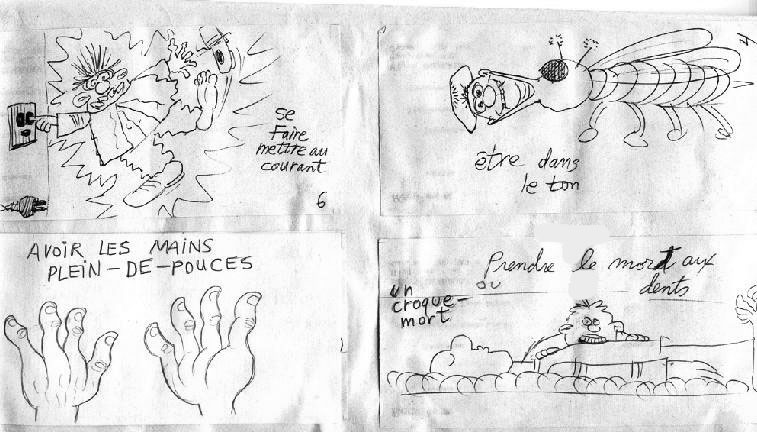 se
Faire
mettre au
courant
6
4
être dans
le ton
AVOIR LES MAINS
PLEIN-DE-POUCES
Prendre le mort aux
dents
ou
un
croque-
mort